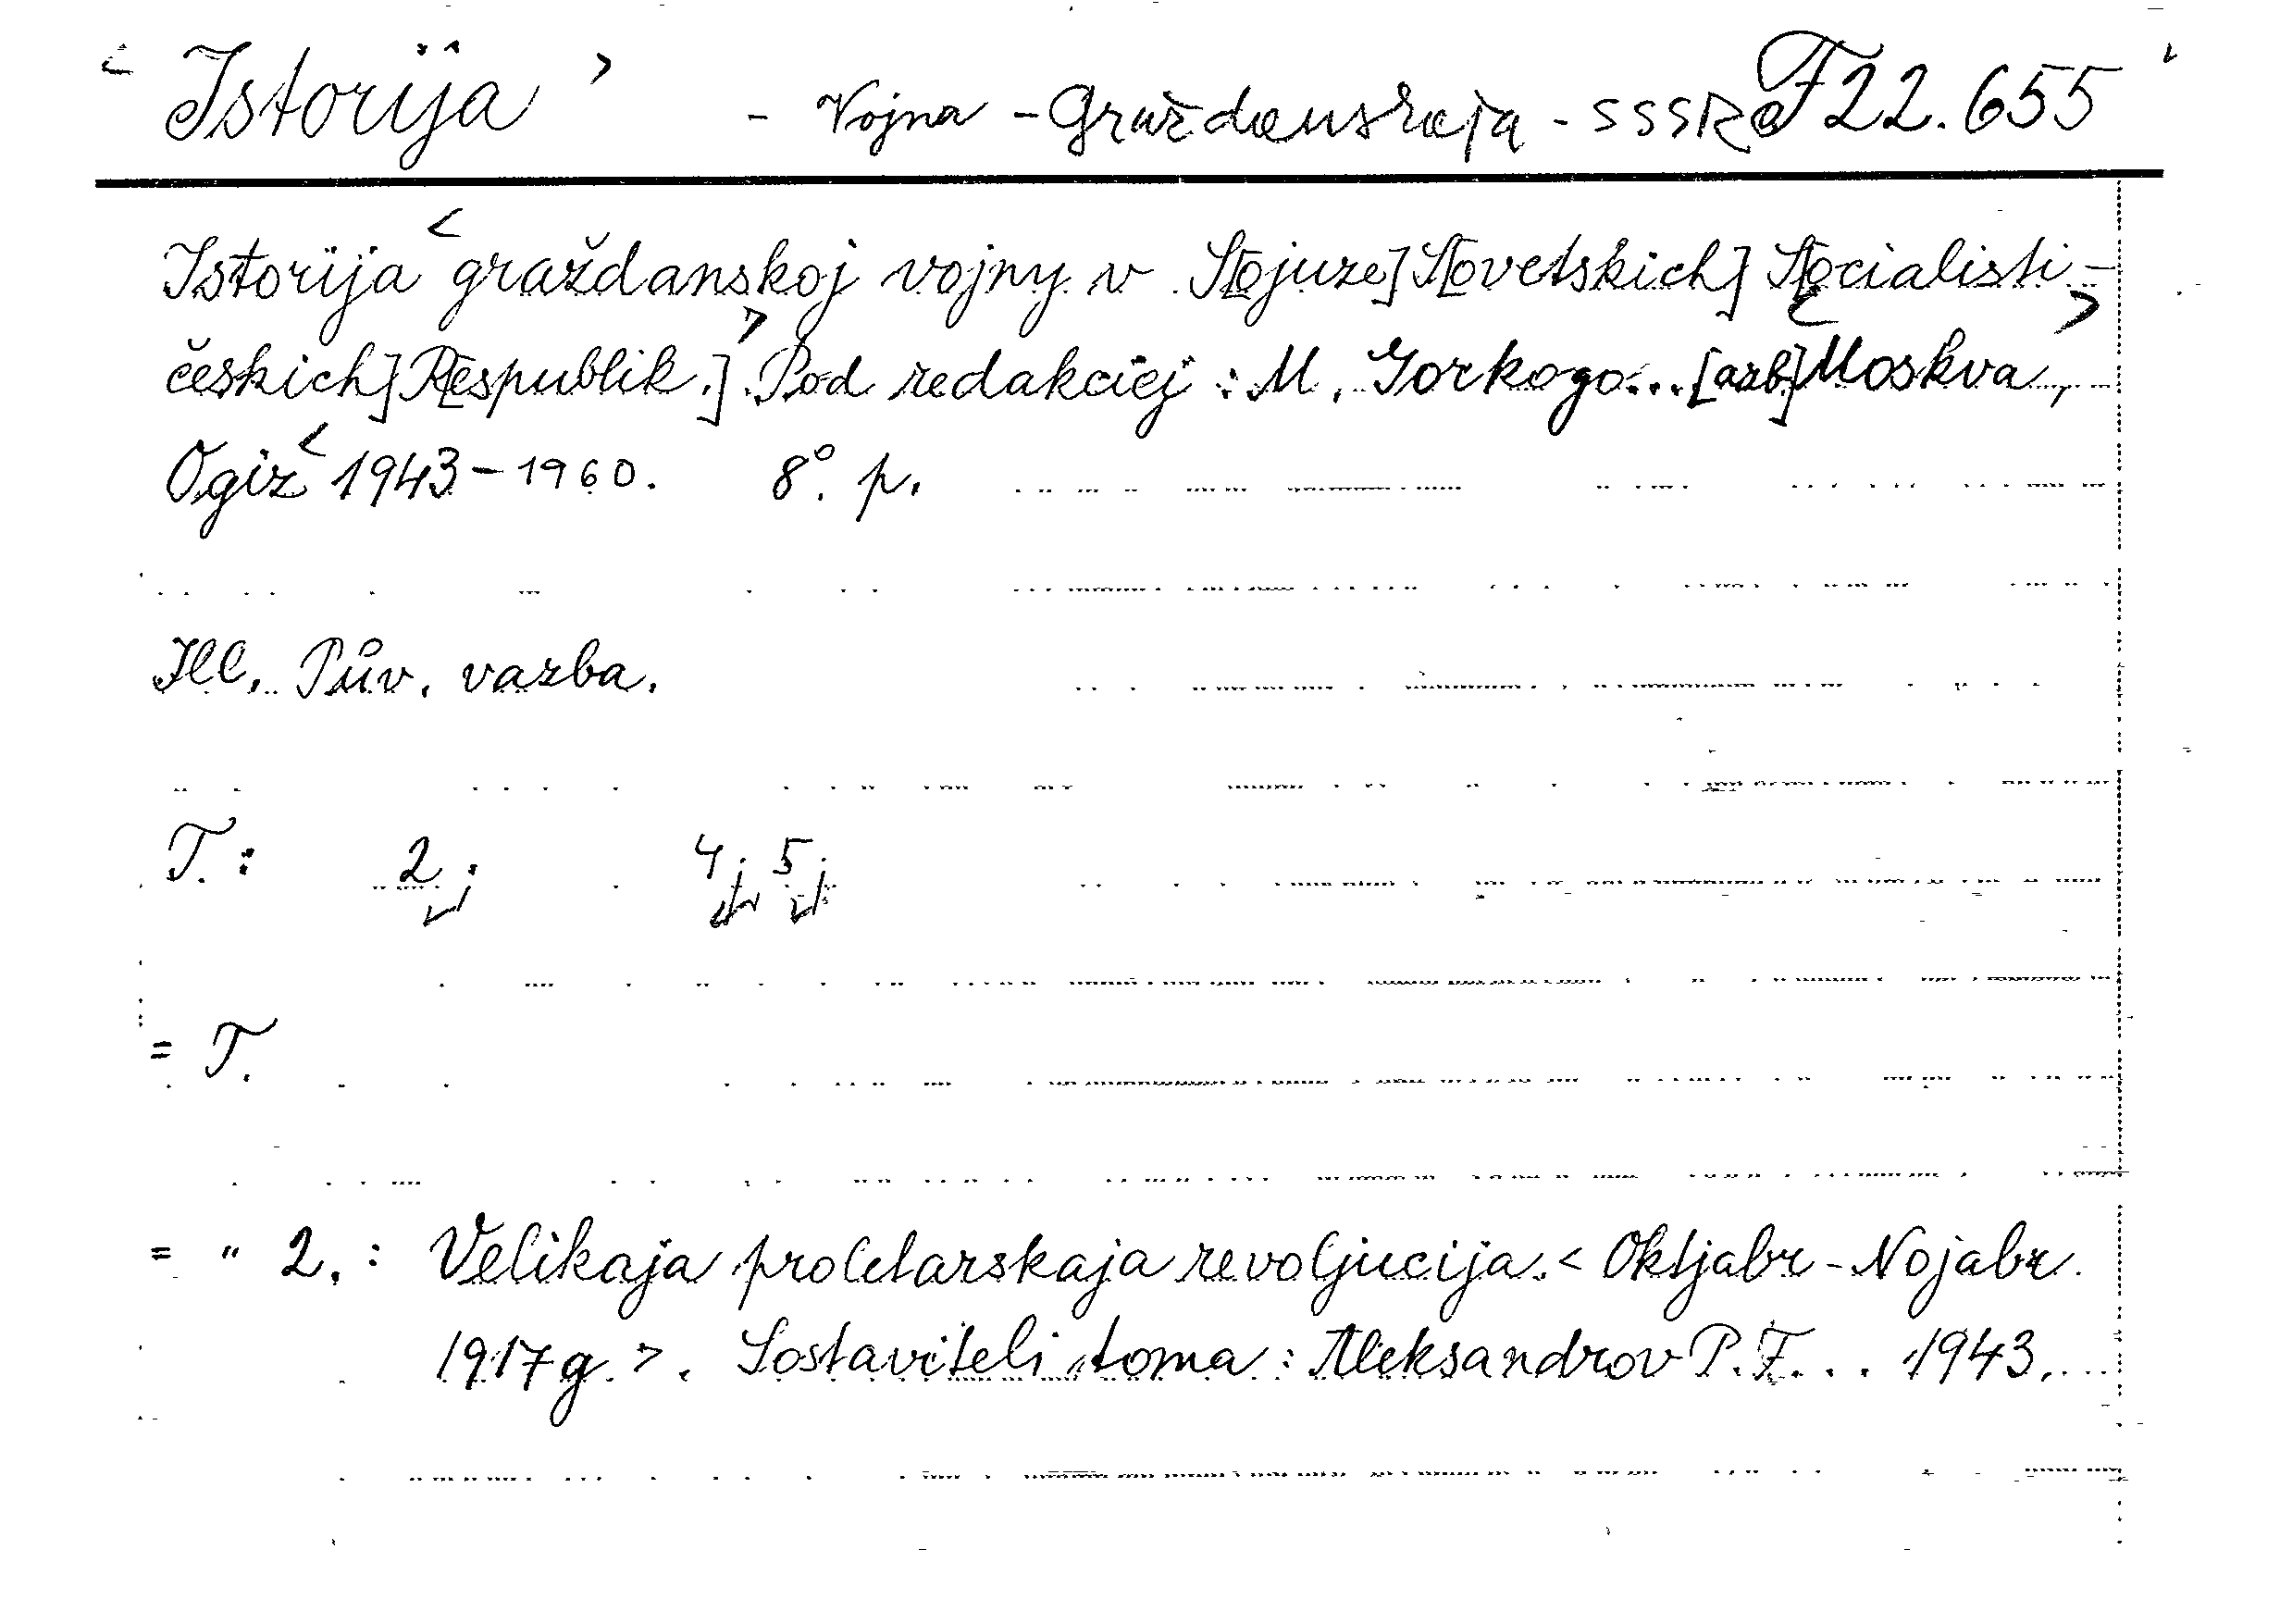 < Istorija > - Vojna - Graždanskaja - SSSR F 22.655
Istorija < graždanskoj vojny v S[ojuze] S[ovetskich] S[ocialisti-
českich] R[espublik.] > Pod redakciej : M. Gorkogo... [azb] < Moskva >,
Ogiz < 1943-1960. 8°. p.
Ill. Pův. vazba.
T. : 2; 4; 5;
= T.
= " 2. : Velikaja proletarskaja revoljucija. < Oktjabr - Nojabr.
1917 g. >. Sostaviteli toma : Aleksandrov P. F. . . 1943.